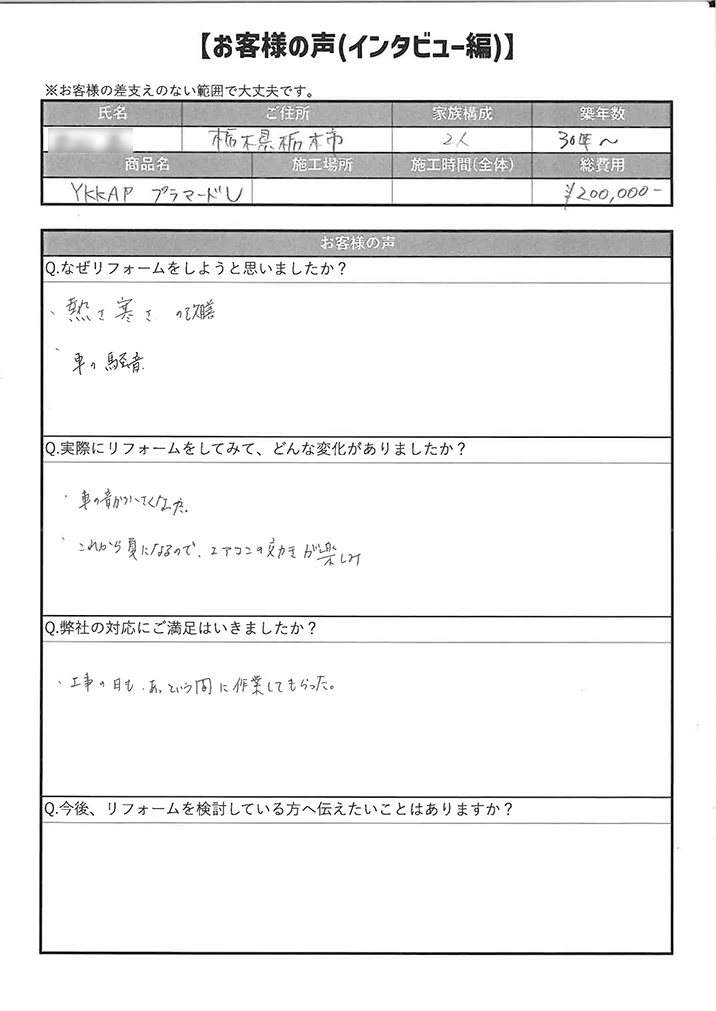 【お客様の声(インタビュー編)】
※お客様の差支えのない範囲で大丈夫です。
氏名 ご住所 家族構成 築年数
栃木県栃木市 2人 30年～
商品名 施工場所 施工時間(全体) 総費用
YKKAP プラマードU ¥200,000-
お客様の声
Q.なぜリフォームをしようと思いましたか？
・熱さ寒さの改善
・車の騒音
Q.実際にリフォームをしてみて、どんな変化がありましたか？
・車の音が小さくなった。
・これから夏になるので、エアコンの効きが楽しみ
Q.弊社の対応にご満足はいきましたか？
・工事の日も、あっという間に作業してもらった。
Q.今後、リフォームを検討している方へ伝えたいことはありますか？